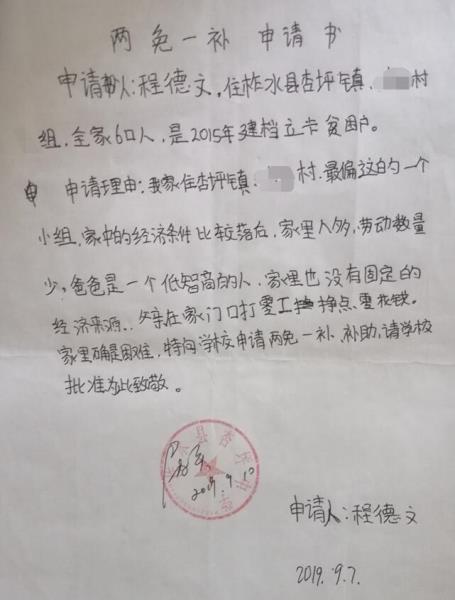 两免一补 申请书
申请人:程德文,住柞水县杏坪镇、村
组,全家6口人,是2015年建档立卡贫困户。
申请理由:我家住杏坪镇、村.最偏远的一个
小组,家中的经济条件比较落后,家里人多,劳动数量
少,爸爸是一个低智商的人,家里也没有固定的
经济来源.,父亲在家门口打零工挣点零花钱。
家里确是困难,特向学校申请两免一补、补助,请学校
批准为此致敬。
2019.9.10
申请人:程德文
2019.9.7.